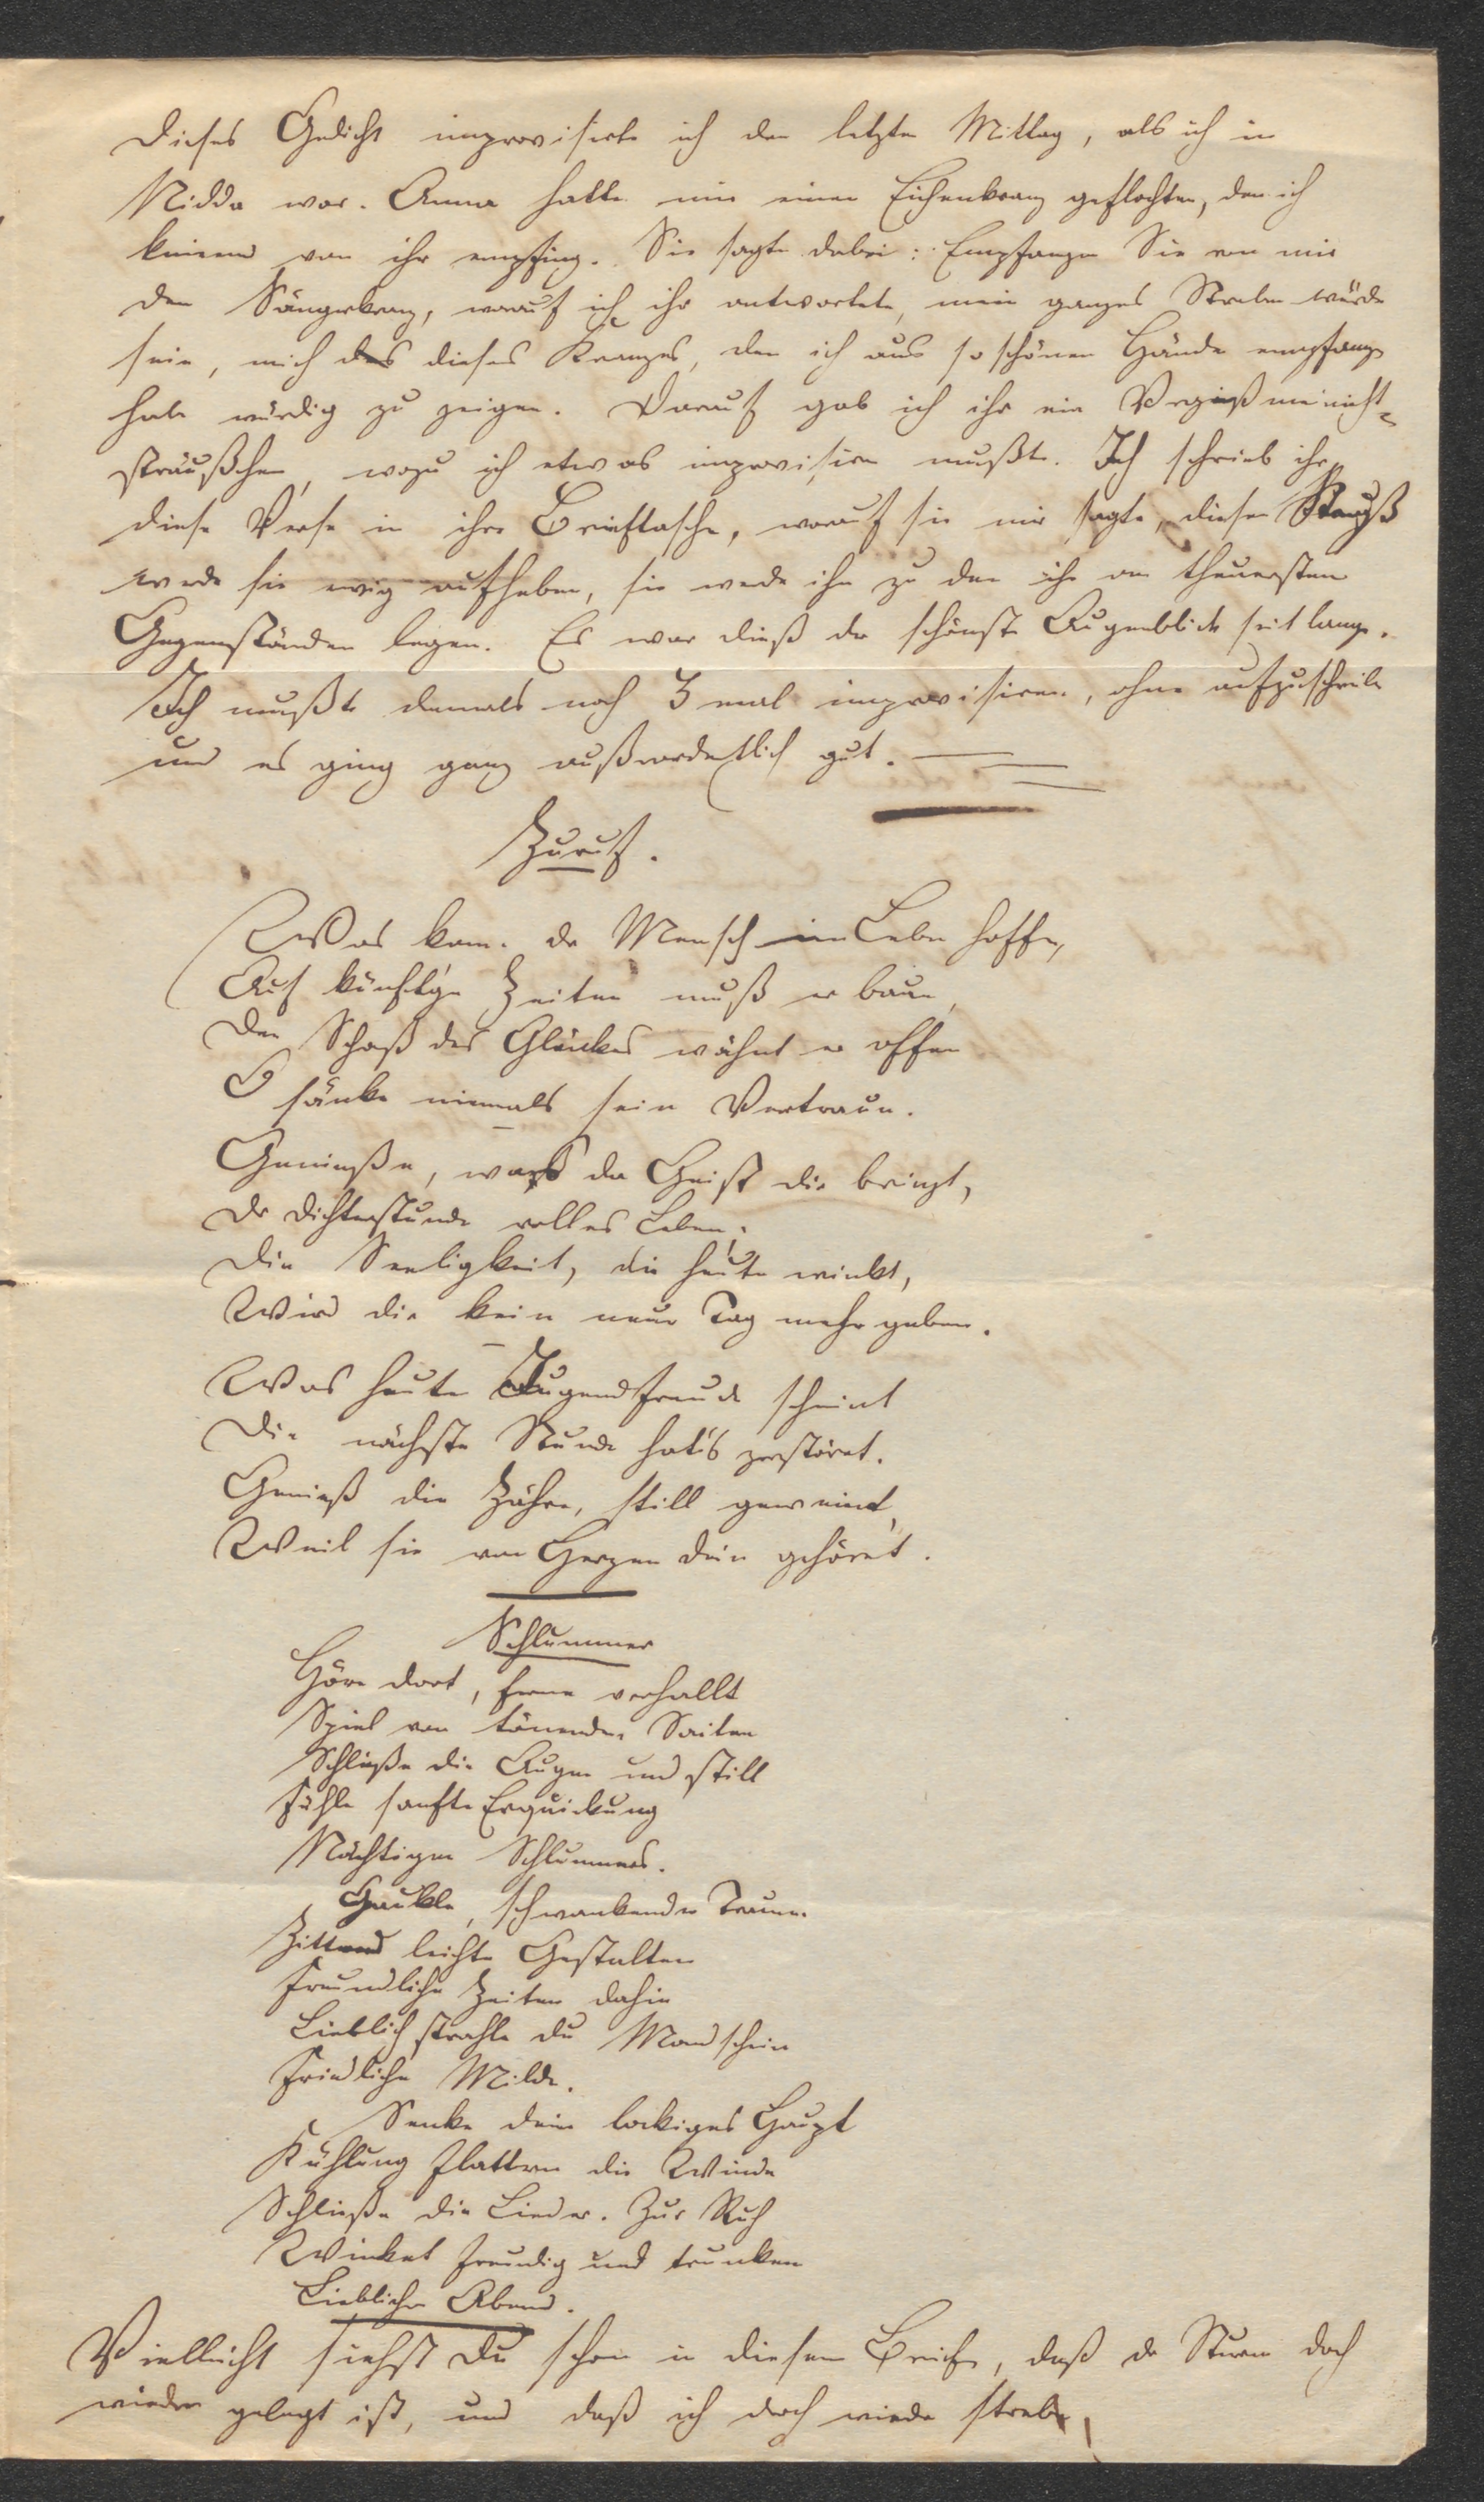 Dieses Gedicht improvisirte ich den letzten Mittag, als ich in
Nidda war. Anna hatte mir einen Eichenkranz geflochten, den ich
knieend von ihr empfing. Sie sagte dabei: Empfangen Sie von mir
den Sängerkranz, worauf ich ihr antwortete, mein ganzes Streben würde
sein, mich des dieses Kranzes, den ich aus so schönen Hände empfange
habe würdig zu zeigen. Darauf gab ich ihr ein Vergißmeinicht-
sträußchen, wozu ich etwas improvisiren mußte. Ich schrieb ihr
diese Verse in ihre Brieftasche, worauf sie mir sagte, diesen Strauß
werde sie ewig aufheben, sie werde ihn zu den ihr am theuersten
Gegenständen legen. Es war dieß der schönste Augenblick seit lange.
Ich mußte damals noch 3 mal improvisiren, ohne aufzuschreiben
und es ging ganz außerordentlich gut.
Zuruf.
Was kann der Mensch im Leben hoffen,
Auf künft'ge Zeiten muß er baun,
Den Schatz des Glückes wähnt er offen
O sänke niemals sein Vertraun.
Genieße, was der Geist dir bringt,
Der Dichterstunde volles Leben,
Die Seeligkeit, die heute winkt,
Wird dir kein neuer Tag mehr geben.
Was heute Jugendfreude scheint
Die nächste Stunde hat's zerstöret.
Genieß die Zähre, still geweint,
Weil sie von Herzen dein gehöret.
Schlummer
Höre dort, ferne verhallt
Spiel von tönenden Saiten
Schließe die Augen und still
Fühle sanfte Erquickung
Nächtigen Schlummers.
Gaukle, schwankender Traum
Zitternd leichte Gestalten
Freundliche Zeiten dahin
Lieblich strahle du Mondschein
Friedliche Milde.
Senke dein lockiges Haupt
Kühlung flattern die Winde
Schließe die Lieder. Zur Ruh
Winket freudig und trunken
Lieblicher Abend.
Vielleicht siehst du schon in diesem Briefe, daß der Sturm doch
wieder gelegt ist, und daß ich doch wieder strebe,